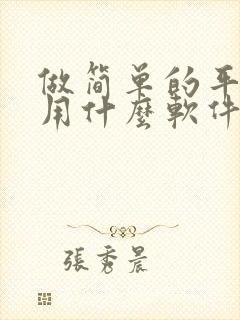 做简单的平
用什麼軟件
張秀晨